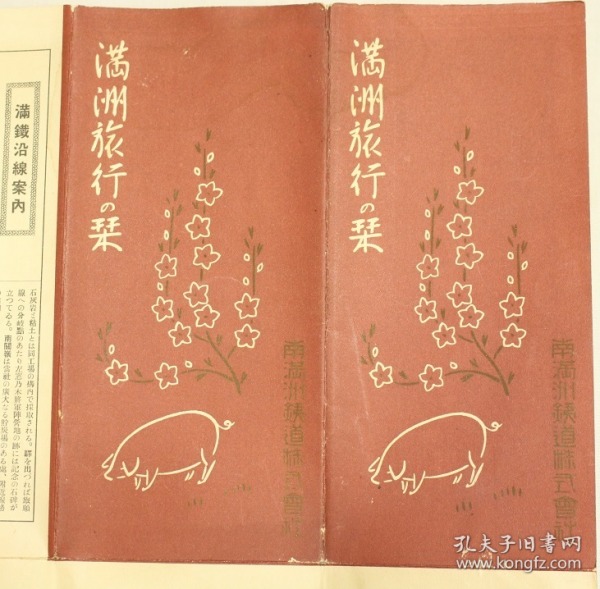 滿洲旅行の栞
南滿洲鐵道株式會社
滿洲旅行の栞
南滿洲鐵道株式會社
滿鐵沿線案內
石灰岩と粘土とは同工場の構內で採取される。驛を出づれば旅順
線への分岐點のあたり左窓乃木將軍陣營地の跡には記念の石碑が
立つてゐる。
孔夫子旧书网
www.kongfz.com